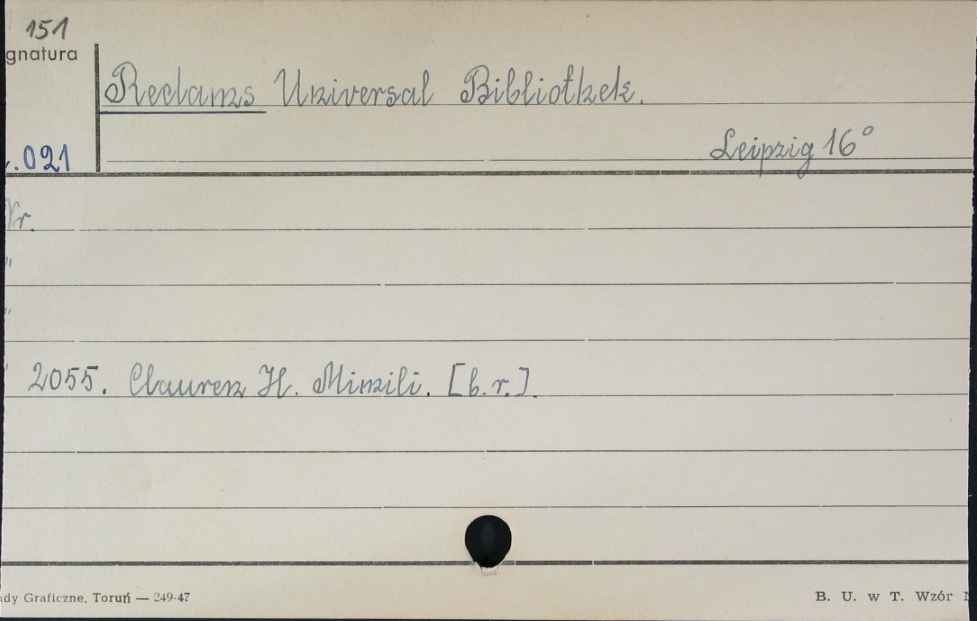 151
gnatura
Reclams Universal Bibliothek.
.021
Leipzig 16°
Nr.
"
"
" 2055. Clauren H. Mimili. [b.r.].
dy Graficzne, Toruń — 249-47
B. U. w T. Wzór